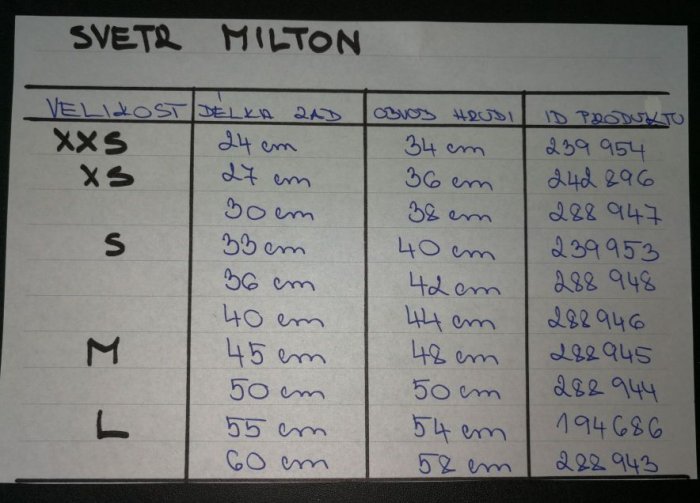 SVETR MILTON
VELIKOST DÉLKA ZAD OBVOD HRUDI ID PRODUKTU
XXS 24 cm 34 cm 239 954
XS 27 cm 36 cm 242 896
30 cm 38 cm 288 947
S 33 cm 40 cm 239 953
36 cm 42 cm 288 948
40 cm 44 cm 288 946
M 45 cm 48 cm 288 945
50 cm 50 cm 288 944
L 55 cm 54 cm 194 686
60 cm 58 cm 288 943